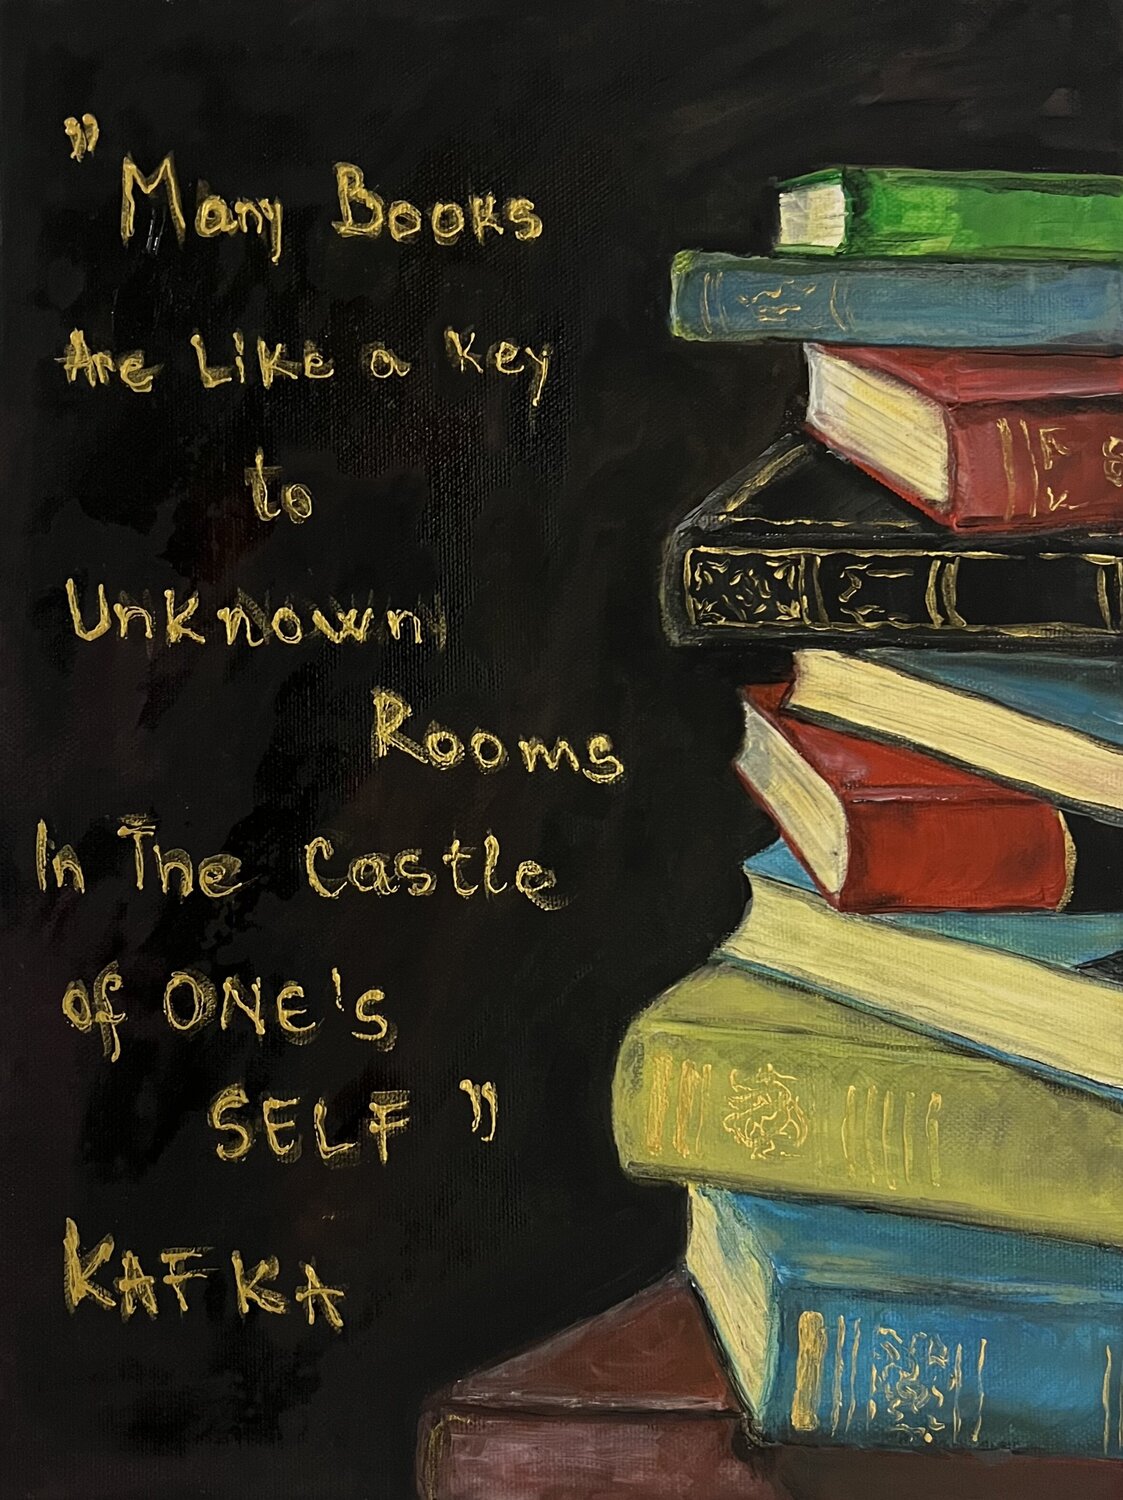 "Many Books
Are Like a Key
to
Unknown
Rooms
In The Castle
of ONE's
SELF"
KAFKA